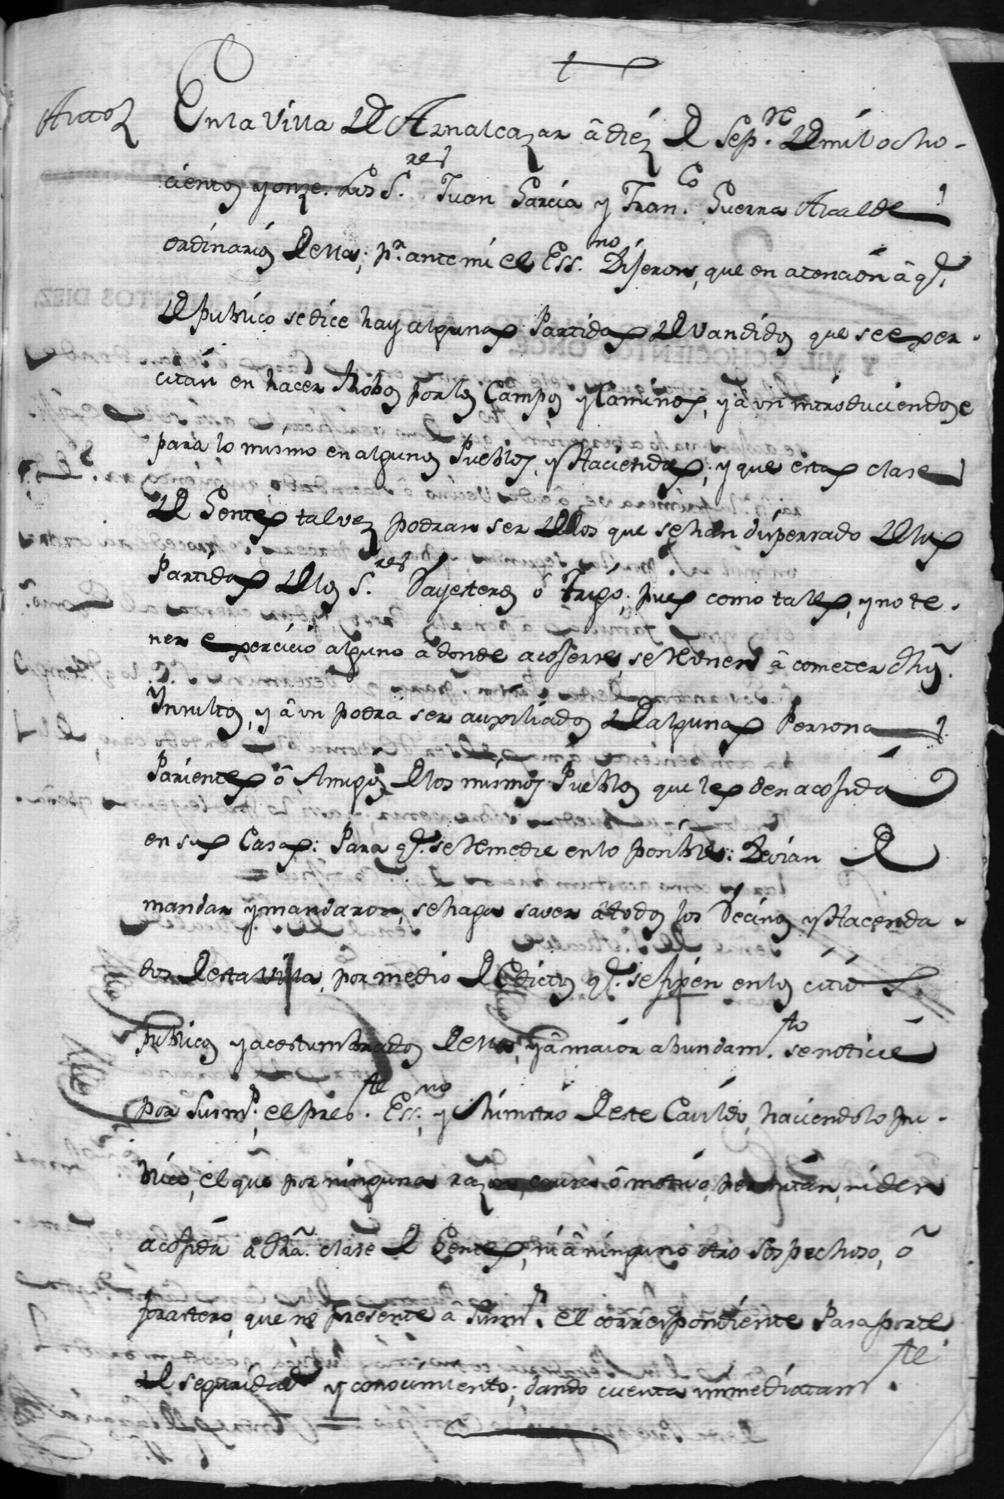 Auto
En la Villa de Aznalcazar â diéz de Sep.re de mil ocho-
cientos y onze. Los S.res Juan Garcia y Fran.co Guerra Alcalde
ordinarios de ella; p.r ante mi el Ess.no Dijeron, que en atencion â q.e
de publico se dice hay algunas Partidas de Vandidos que se exer-
citan en hacer Robos por los Campos y Caminos, y â un introduciendose
para lo mismo en algunos Pueblos, y Haciendas; y que esta clase
de Gentes tal vez podran ser de los que se han dispersado de las
Partidas de los S.res Vayesteros ô Trigo; pues como tales, y no te-
ner exercicio alguno a donde acojerse, se reunen â cometer dhôs.
Ynsultos, y â un podra ser auxiliados de algunas Persona
Parientes ô Amigos de los mismos Pueblos que les den acojida
en sus Casas: Para q.e se remedie en lo posible: Devian de
mandar y mandaron, se haga saver â todos los Vecinos y Hacenda-
dos de esta Villa, por medio de Edictos q.e se fixen en los citios
publicos y acostumbrados de ella, y â maior abundam.to se noticie
por Su im.d, el pres.te Ess.no y Ministro de este Cavildo, haciendolo pu-
blico, el que por ninguna razon, causa ô motivo, permitan, ni den
acojida â dhâ. clase de Gentes, ni â ninguno otro sospechoso, ô
forastero, que no presente â Su im.d el correspondiente Pasaporte
de seguridad y conocimiento; dando cuenta immediatam.te